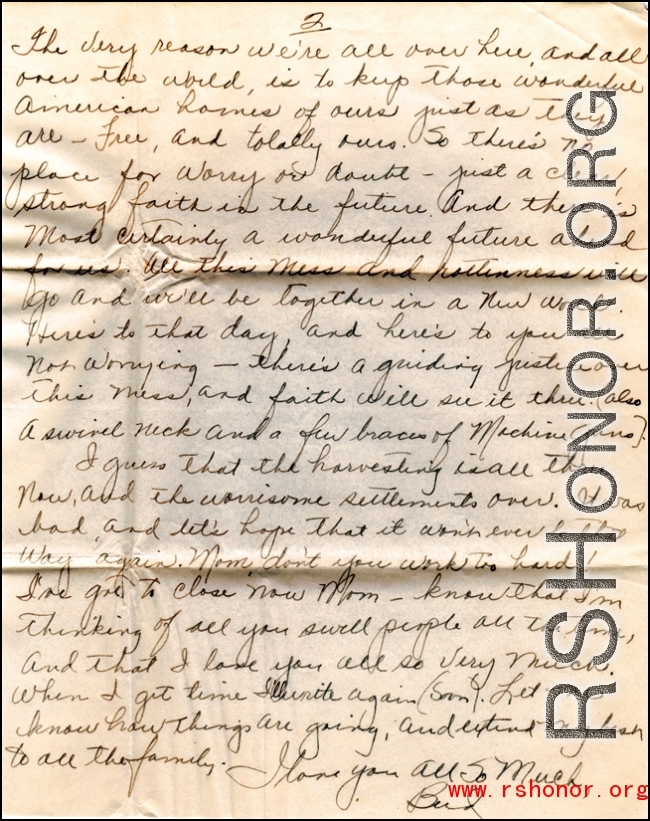 2
The very reason we're all over here, and all
over the world, is to keep those wonderful
American homes of ours just as they
are - Free, and totally ours. So there's no
place for worry or doubt - just a
strong faith in the future. And there's
most certainly a wonderful future ahead
for us. All this mess and rottenness will
go and we'll be together in a new
Here's to that day, and here's to you
not worrying - there's a guiding justice over
this mess, and faith will see it thru. (also
a swivel neck and a few braces of Machine Guns).
I guess that the harvesting is all
now, and the worrisome settlements over. It was
bad, and let's hope that it won't ever
way again. Mom, don't you work too hard!
I've got to close now Mom - know that I'm
thinking of all you swell people all the time,
and that I love you all so very much.
When I get time I'll write again (Soon). Let
know how things are going, and extend my love
to all the family.
I love you all so much
Bud
RSHONOR.ORG
www.rshonor.org